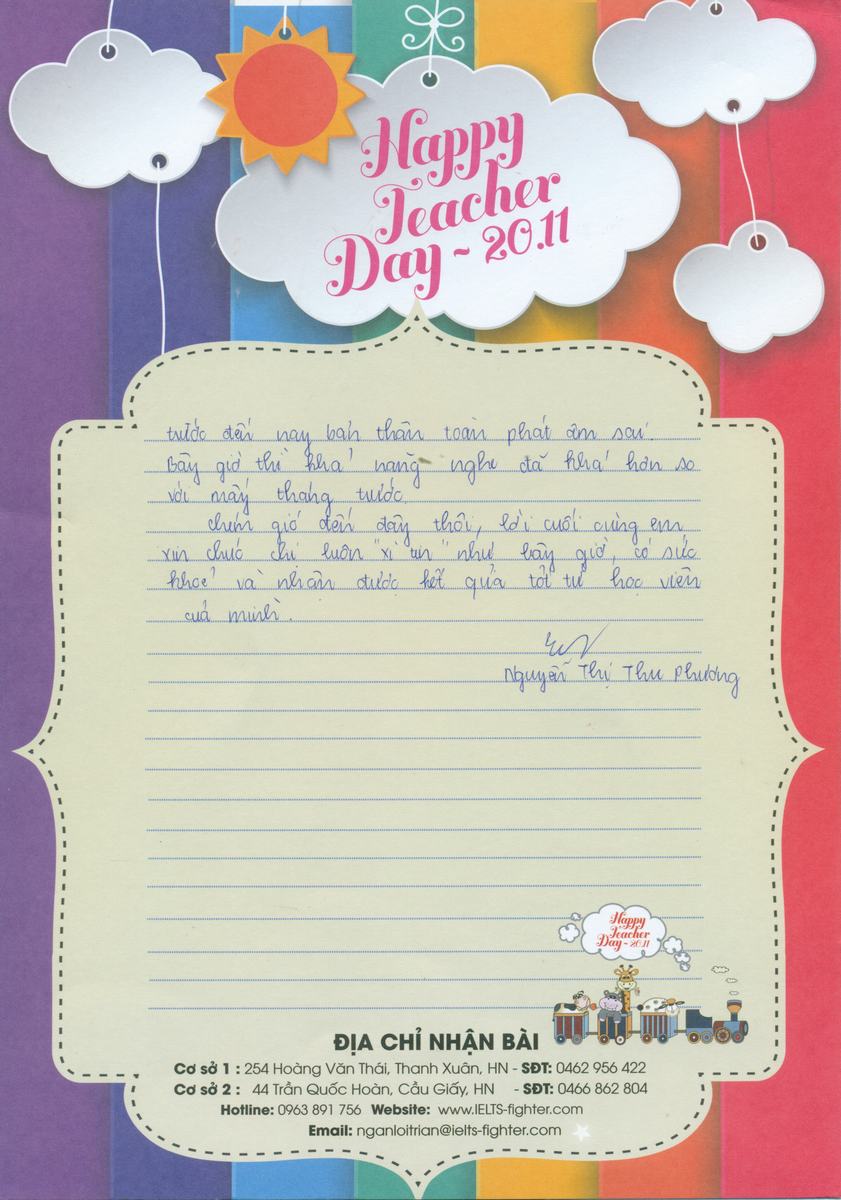 Happy
Teacher
Day ~ 20.11
trước đến nay bản thân toàn phát âm sai.
Bây giờ thì khả năng nghe đã khá hơn so
với mấy tháng trước.
chém gió đến đây thôi, lời cuối cùng em
xin chúc chị luôn "xì tin" như bây giờ, có sức
khoẻ và nhận được kết qủa tốt từ học viên
của mình.
Nguyễn Thị Thu Phương
Happy
Teacher
Day ~ 20.11
ĐỊA CHỈ NHẬN BÀI
Cơ sở 1 : 254 Hoàng Văn Thái, Thanh Xuân, HN - SĐT: 0462 956 422
Cơ sở 2 : 44 Trần Quốc Hoàn, Cầu Giấy, HN - SĐT: 0466 862 804
Hotline: 0963 891 756 Website: www.IELTS-fighter.com
Email: nganloitrian@ielts-fighter.com